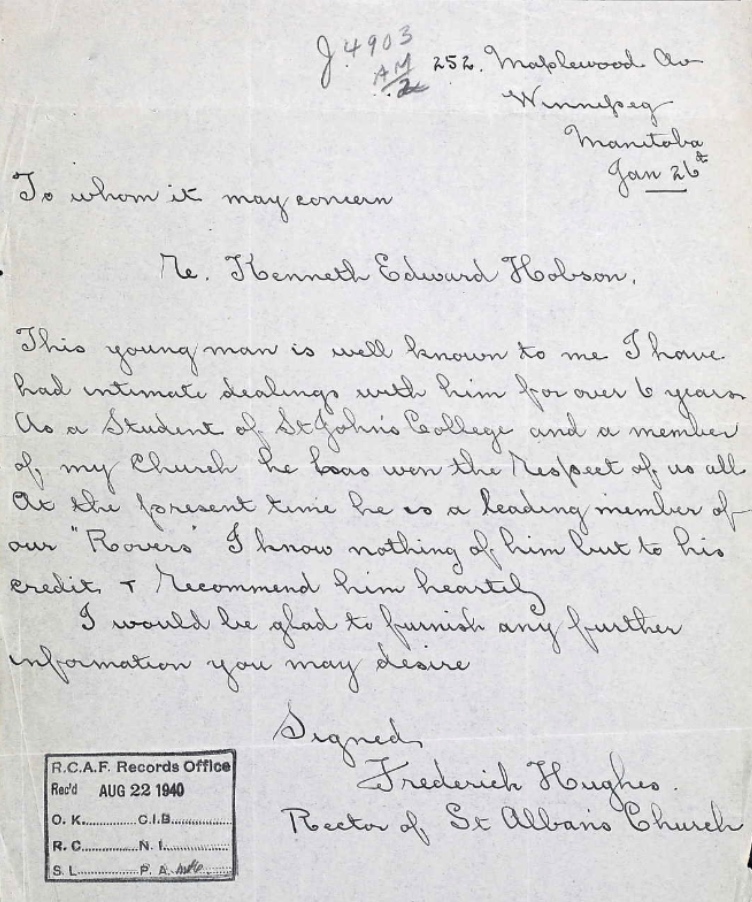 J.4903
AM
2
252. Maplewood Av
Winnipeg
Manitoba
Jan 26t
To whom it may concern
Re. Kenneth Edward Hobson.
This young man is well known to me I have
had intimate dealings with him for over 6 years
As a Student of St John's College and a member
of my Church he has won the Respect of us all
At the present time he is a leading member of
our "Rovers" I know nothing of him but to his
credit & Recommend him heartily
I would be glad to furnish any further
information you may desire
Signed
Frederick Hughes.
Rector of St Alban's Church
R.C.A.F. Records Office
Rec'd AUG 22 1940
O. K. C.I.B.
R. C. N. I.
S. L. P. A.